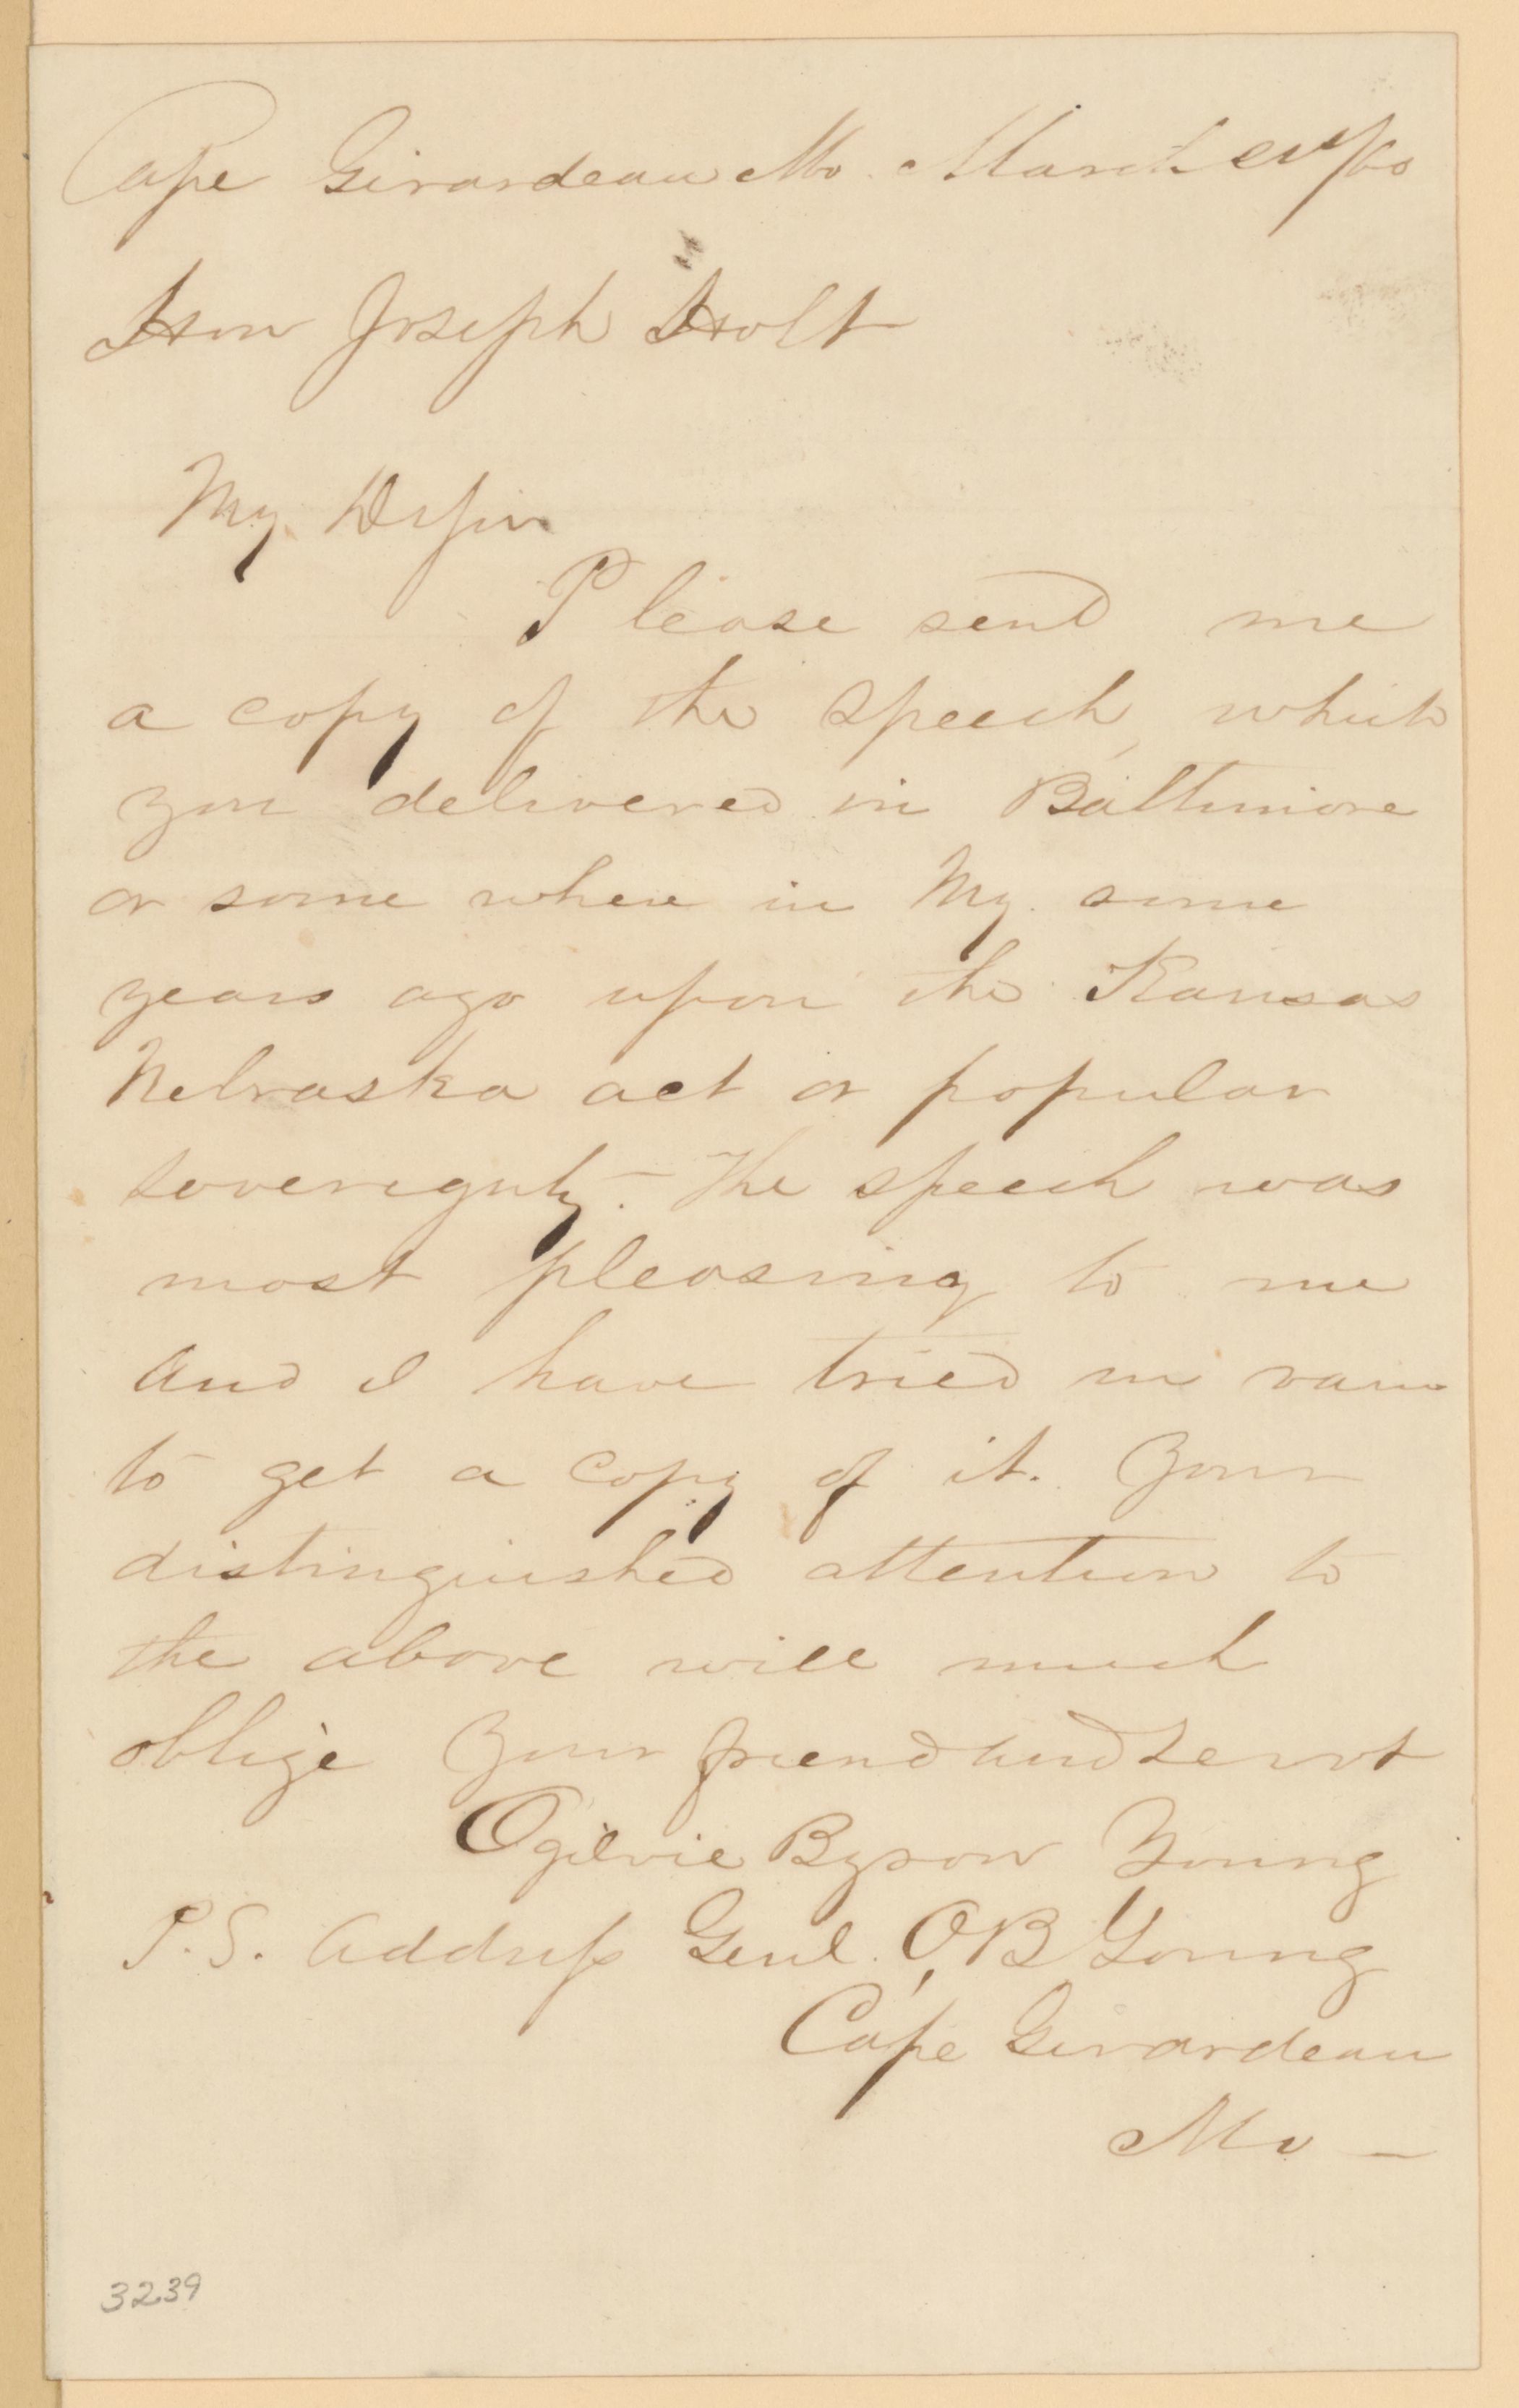 Cape Girardeau Mo. March /60
Hon Joseph Holt
My Dr Sir
Please send me
a copy of the speech, which
you delivered in Baltimore
or some where in Ky. some
years ago upon the Kansas
Nebraska act or popular
sovereignty. - The speech was
most pleasing to me
and I have tried in vain
to get a copy of it. Your
distinguished attention to
the above will much
oblige Your friend and servt
Ogilvie Byron Young
P.S. Address Genl. O, B Young
Cape Girardeau
Mo —
3239